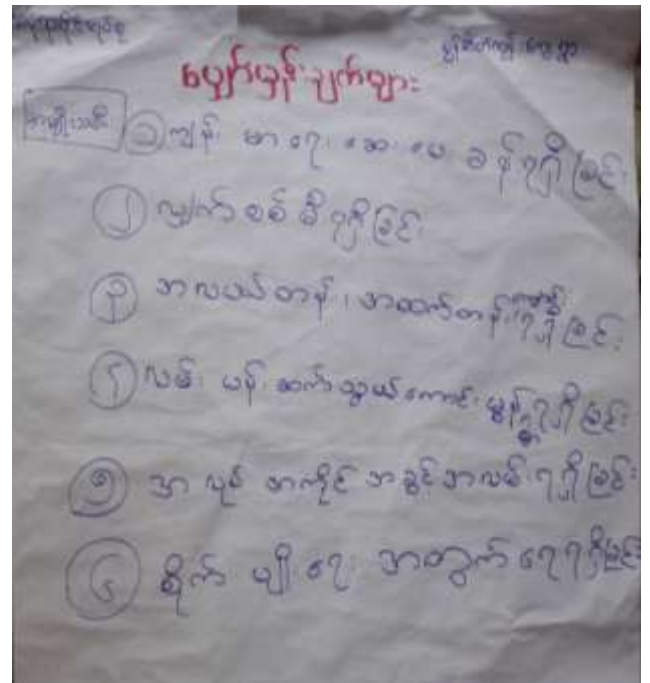 မျှော်မှန်းချက်များ
အမျိုးသမီး
၁ ကျန်းမာရေးဆေးပေးခန်းရရှိခြင်း
၂ လျှက်စစ်မီးရရှိခြင်း
၃ အလယ်တန်း၊ အထက်တန်းကျောင်းရရှိခြင်း
၄ လမ်းပန်းဆက်သွယ်ကောင်းမွန်စွာရရှိခြင်း
၅ အလုပ်အကိုင်အခွင့်အလမ်းရရှိခြင်း
၆ စိုက်ပျိုးရေးအတွက်ရေရရှိခြင်း